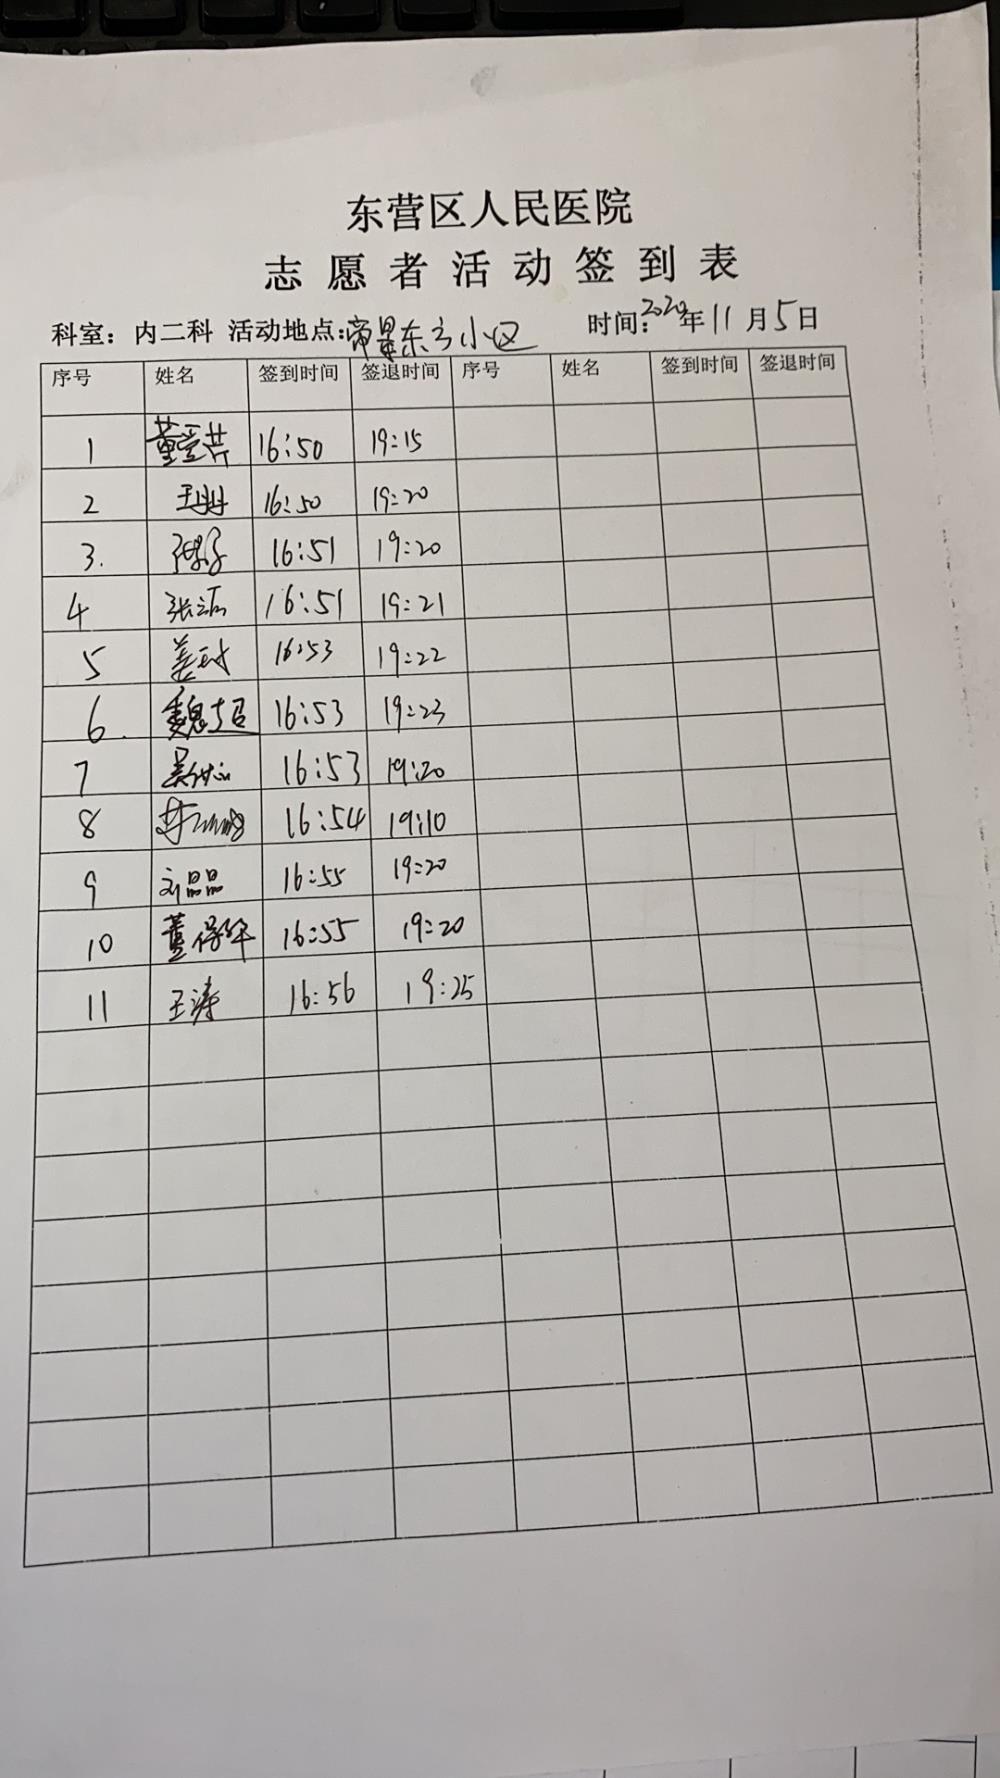 东营区人民医院
志愿者活动签到表
科室：内二科 活动地点：帝景东方小区 时间：2020年11月5日
序号 姓名 签到时间 签退时间 序号 姓名 签到时间 签退时间
1 董爱芹 16:50 19:15
2 16:50 19:20
3. 16:51 19:20
4 张 16:51 19:21
5 姜 16:53 19:22
6. 魏超 16:53 19:23
7 吴 16:53 19:20
8 李 16:54 19:10
9 刘晶晶 16:55 19:20
10 董保华 16:55 19:20
11 王涛 16:56 19:25